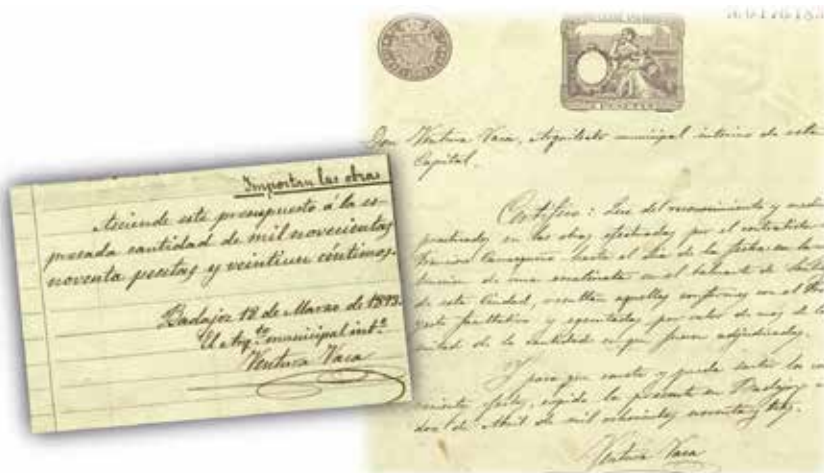 Importan las obras
Asciende este presupuesto á la es-
presada cantidad de mil novecientas
noventa pesetas y veintiun céntimos.
Badajoz 18 de Marzo de 1893.
El Arq.to municipal int.o
Ventura Vaca
Don Ventura Vaca, Arquitecto municipal interino de esta
Capital.
Certifico: Que del reconocimiento y
practicado en las obras efectuadas por el contratista
Francisco hasta el dia de la fecha en la
de una en el baluarte de
de esta Ciudad, resultan aquellas conformes con el
facultativo y ejecutadas por valor de mas de la
mitad de la cantidad en que fueron adjudicadas.
Y para que conste y pueda surtir los
efectos, expido la presente en Badajoz á
dos de Abril de mil ochocientos noventa y tres.
Ventura Vaca